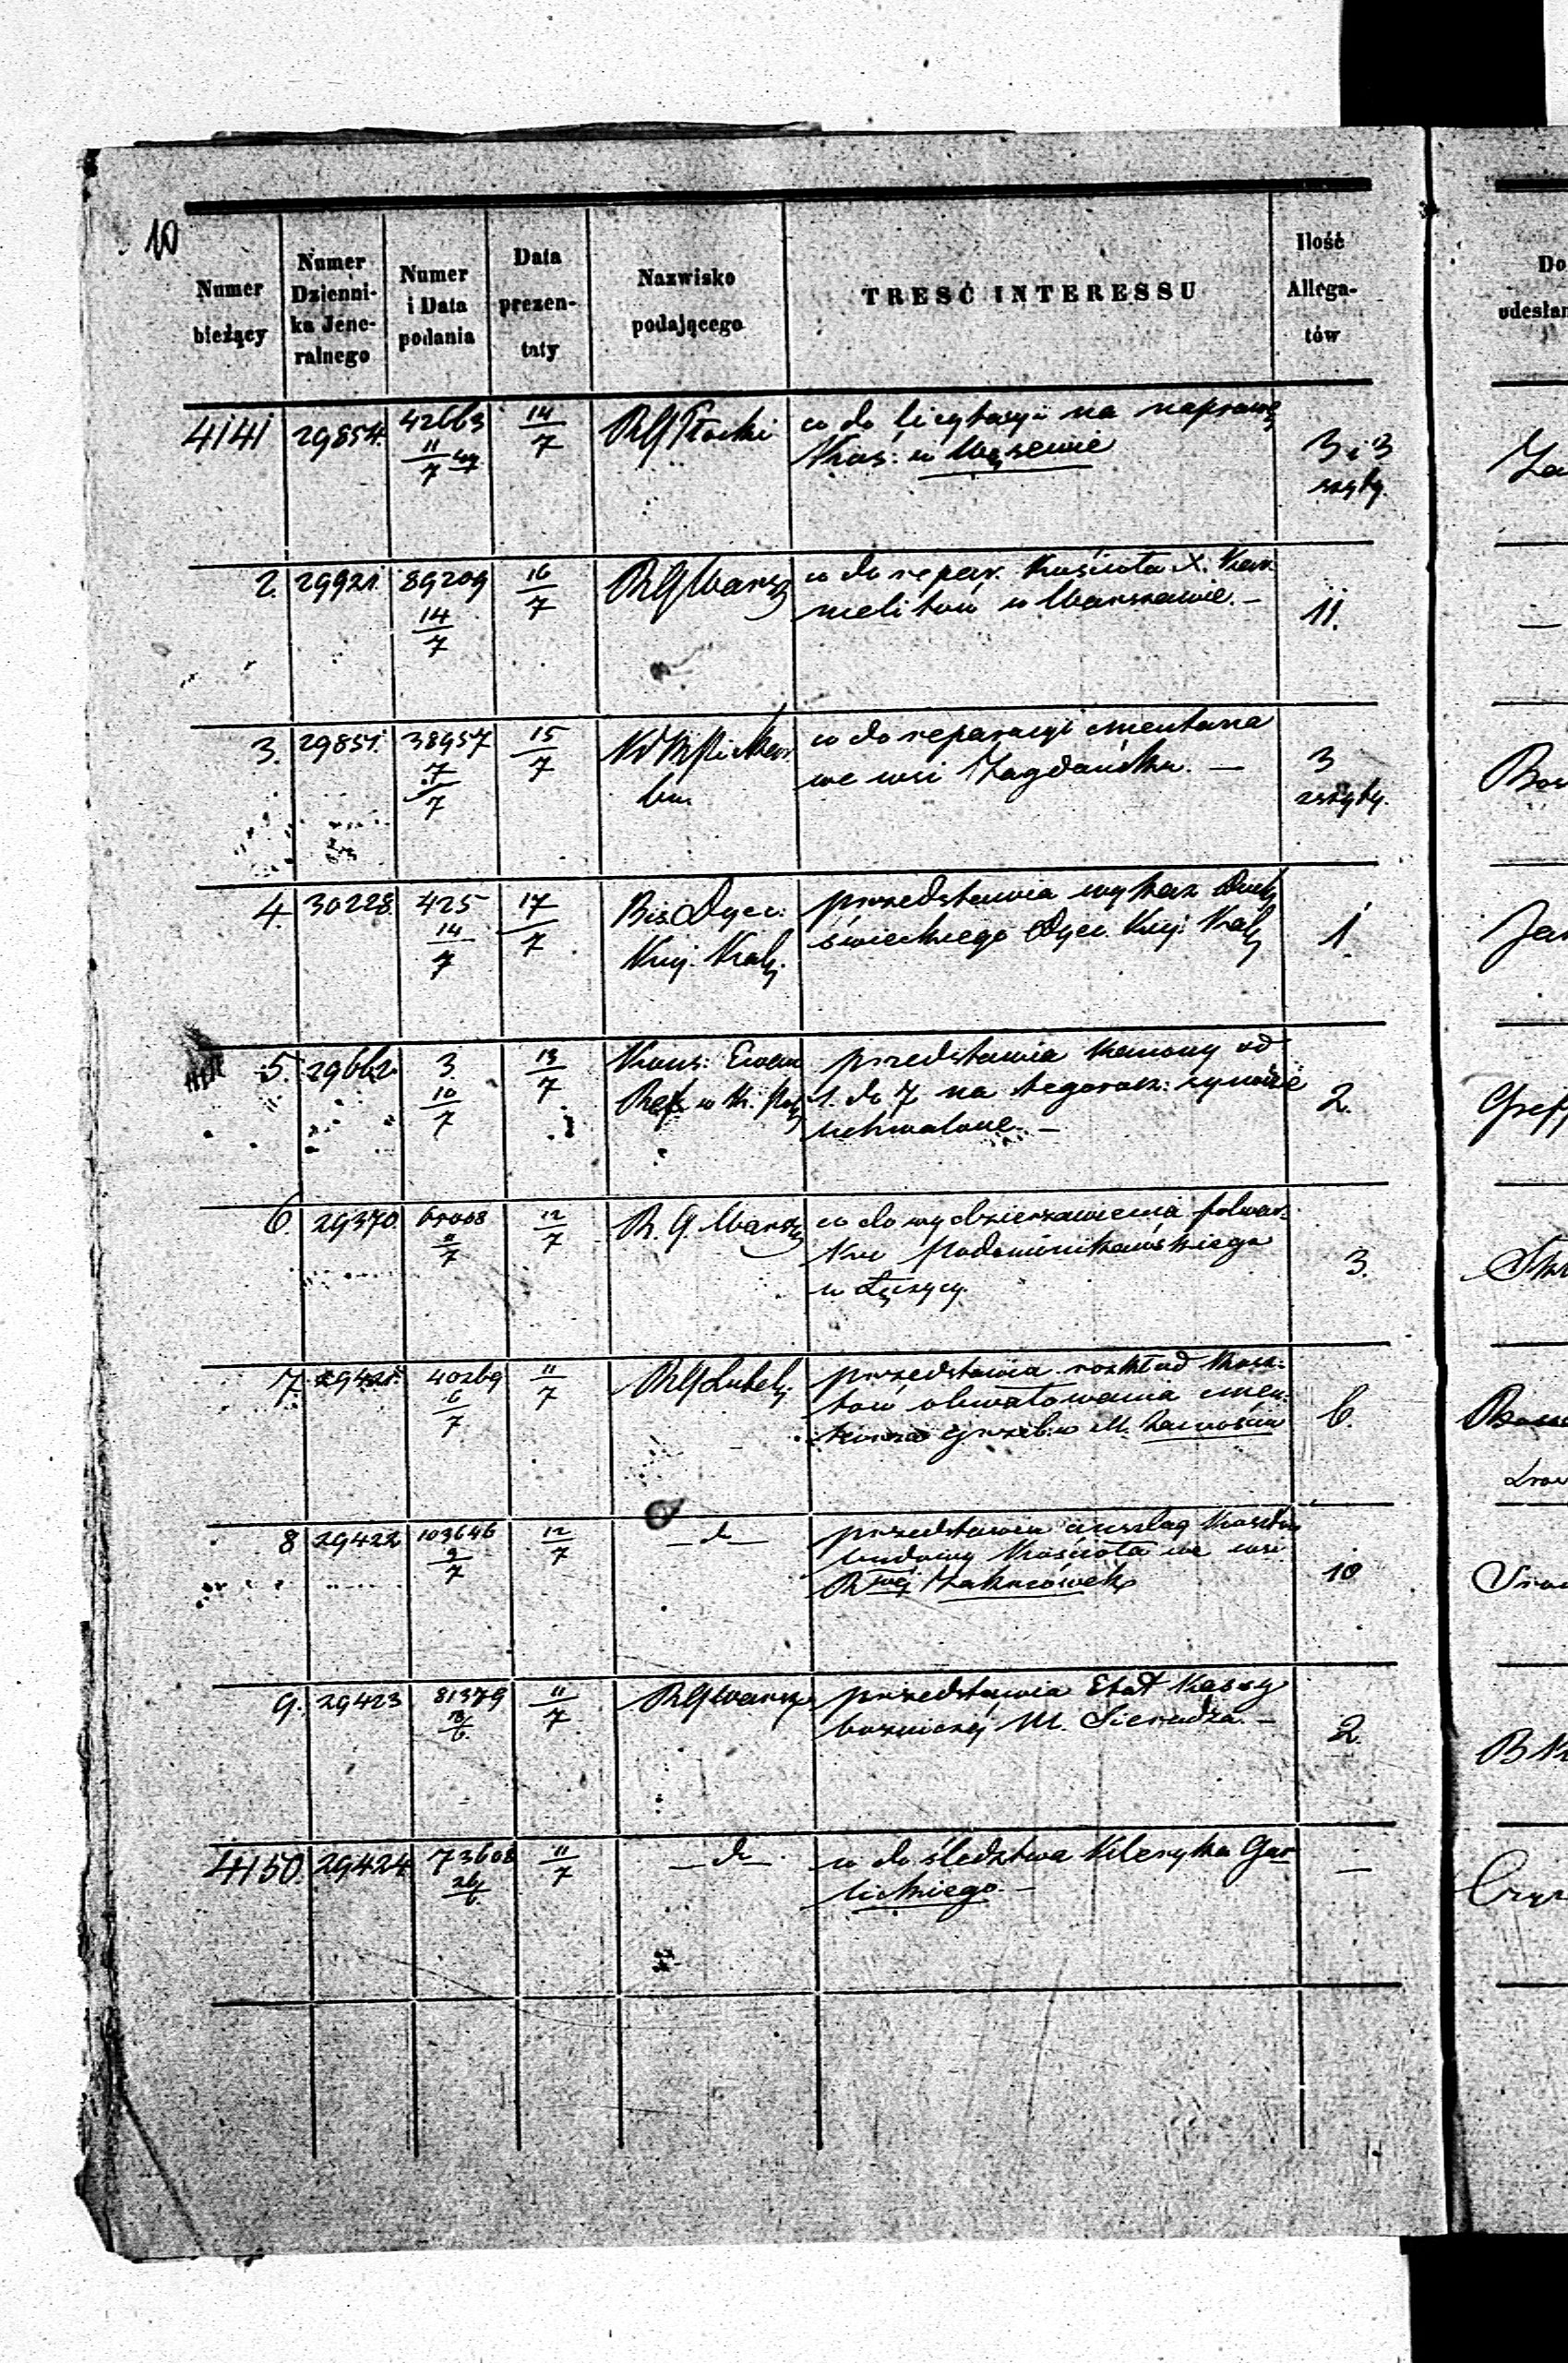 10
Numer
bieżący
Numer
Dzienni-
ka Jene-
ralnego
Numer
i Data
podania
Data
prezen-
taty
Nazwisko
podającego
TREŚĆ INTERESSU
Ilość
Allega-
tów
Do
odesłan
4141 29854. 42663 11/7 47 14/7 RG Płocki co do licytacyi na naprawę
Koś: w Wąsewie
3 i 3
szyty.
2. 29921. 89209 14/7 16/7 RG Warsz co do repar. Kościoła X. Kar-
melitów w Warszawie. —
11.
3. 29851. 38957 7/7 15/7 co do reparacyi cmentarza
we wsi Zagdańsku. —
3
zszyty.
4. 30228. 425 14/7 17/7 Bis. Dyec: przedstawia wykaz Duch
Kuj. Kal. świeckiego Dyec. Kuj: Kal
1.
5. 29662. 3 10/7 13/7 Kons: Ewan przedstawia kanony od
Ref. w Kr. Pol 1. do 7 na tegorocz: synodzie
uchwalone. —
2.
6. 29370. 11/7 12/7 R. G. Warsz co do wydzierżawienia folwar-
ku Podominikańskiego
w Łęczycy.
3.
7. 29421. 40269 6/7 11/7 RG Lubel. przedstawia rozkład kosz-
tów obwałowania cmen-
tarza grzeb: w M. Zamościu
6.
8 29422 103646 9/7 12/7 — d — przedstawia anszlag kosztów
budowy Kościoła we wsi
Zakrzówek
10
9. 29423 81379 18/6. 11/7 RG Warsz przedstawia Etat Kassy
bożniczej M. Sieradza. —
2.
4150. 29424 73608 26/6. 11/7 — d — co do śledztwa Kleryka Gar-
lickiego. —
—